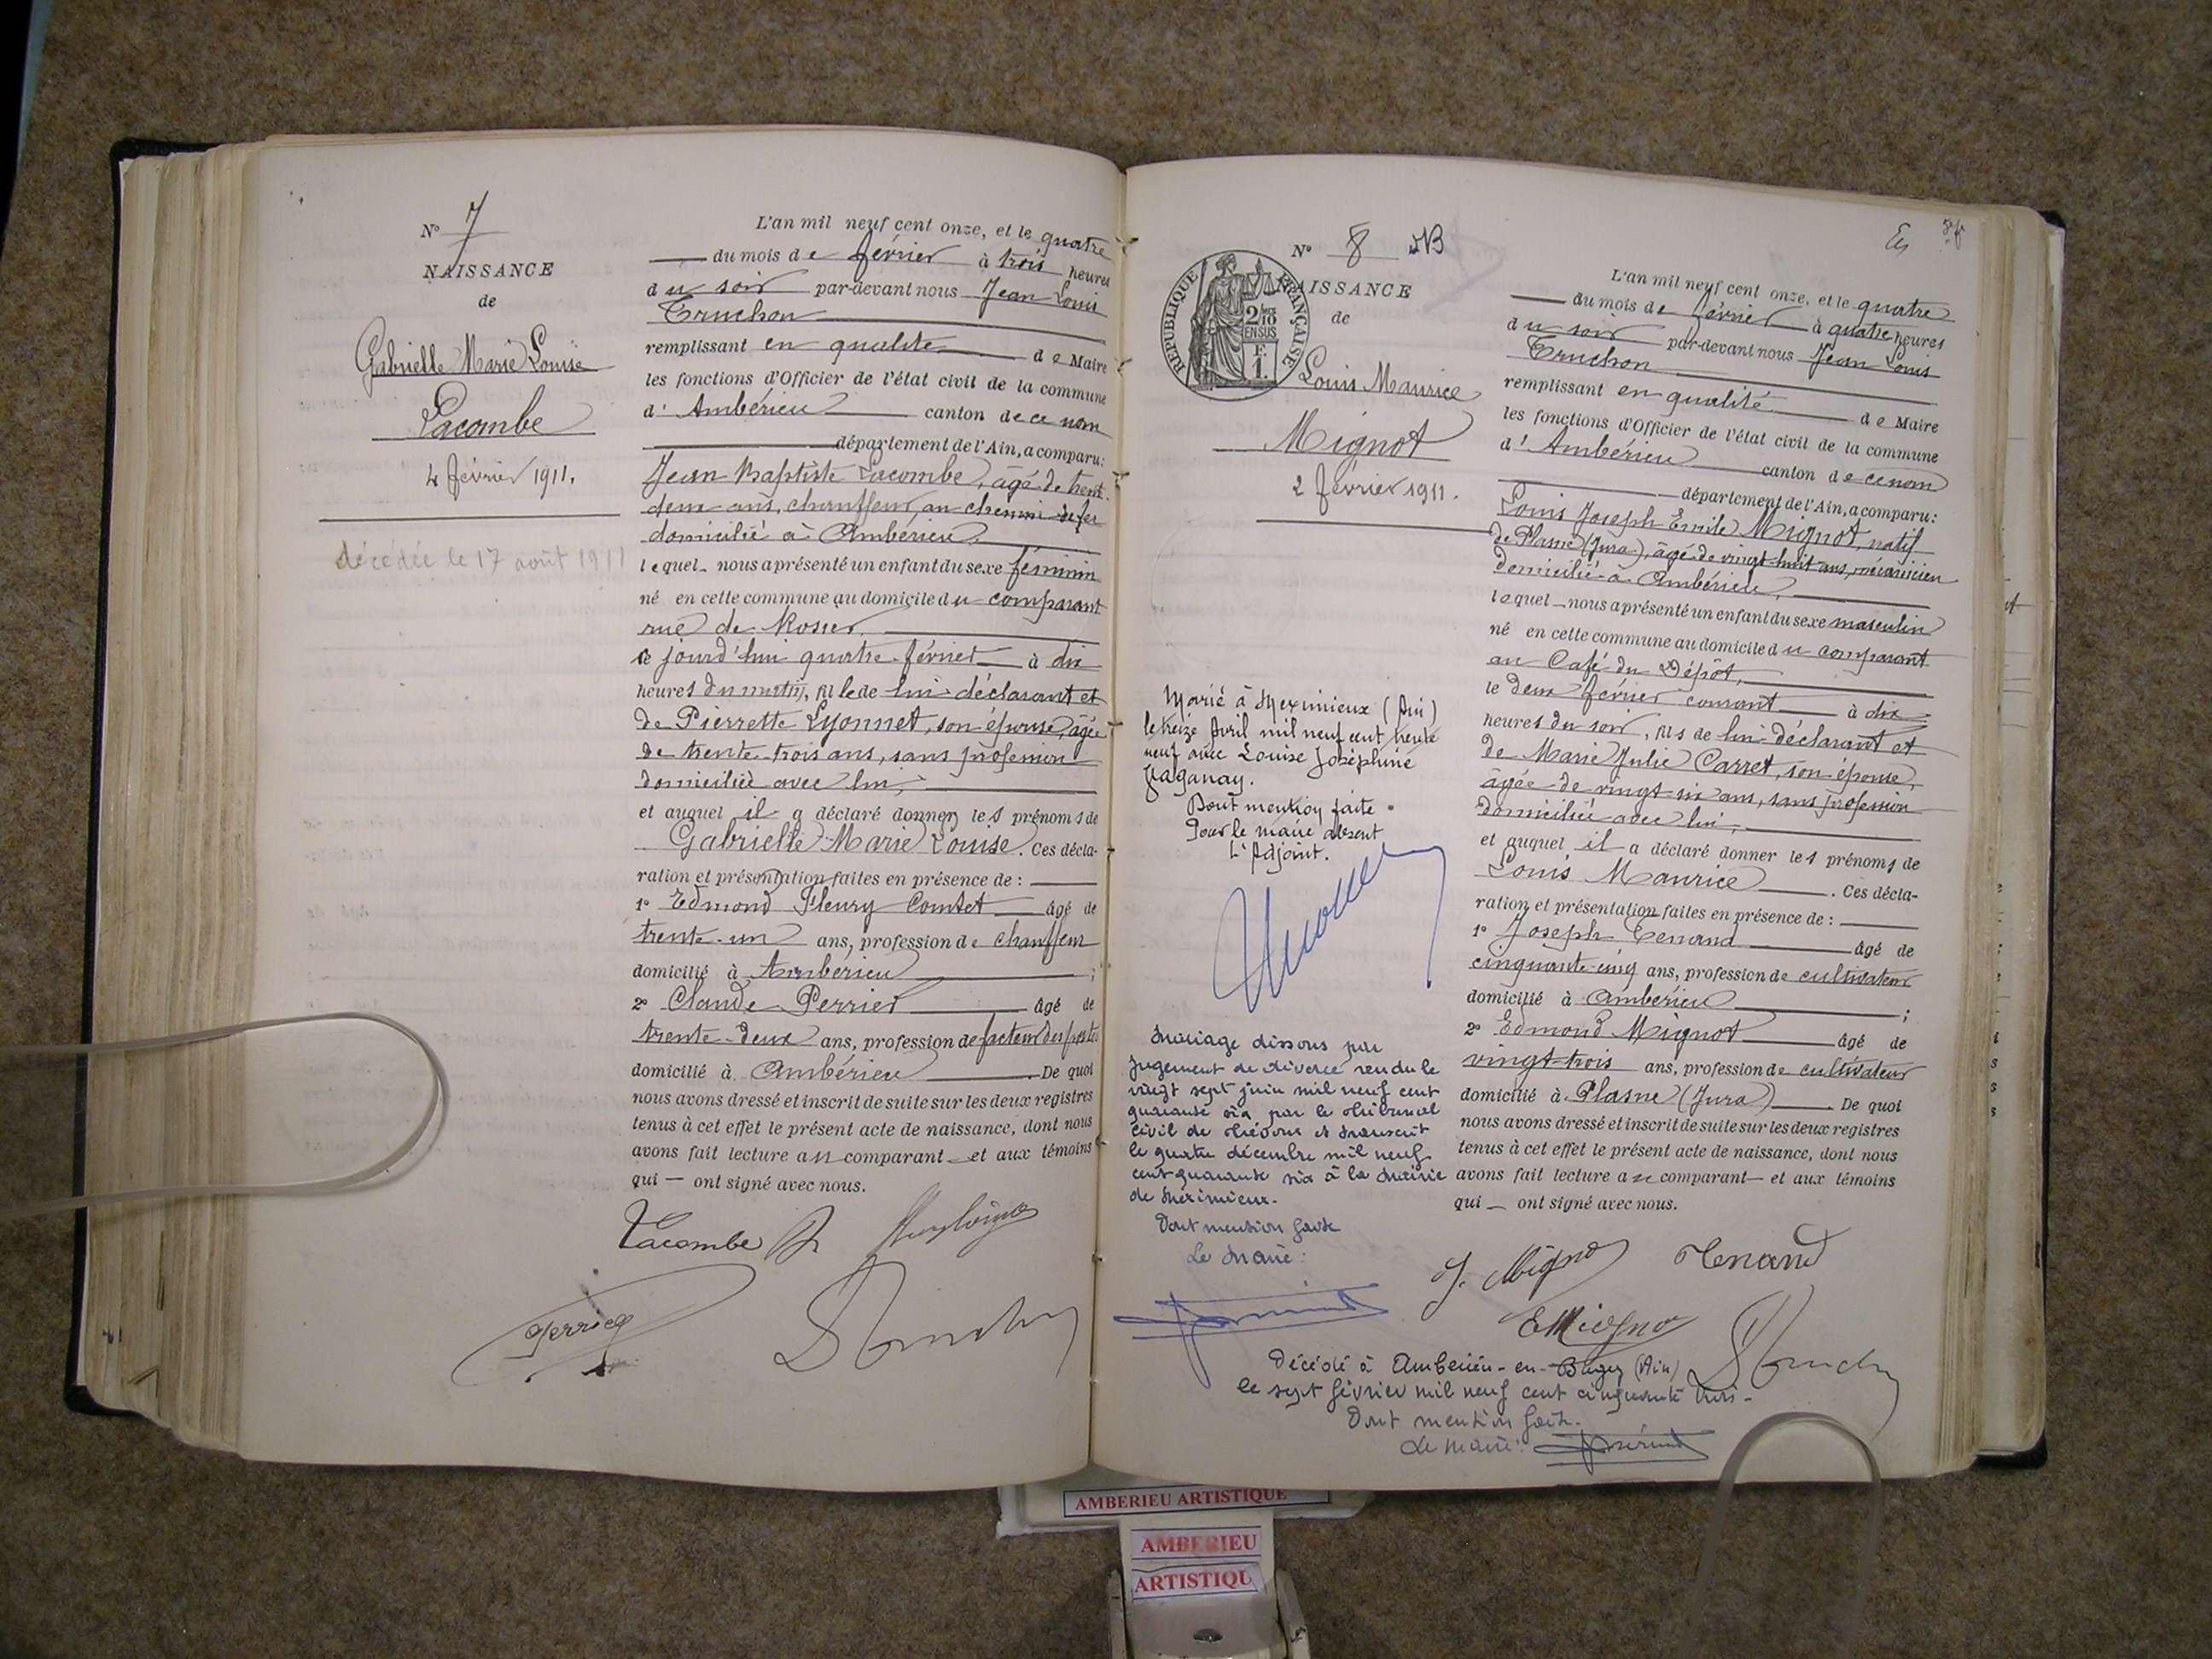 N° 7
NAISSANCE
de
Gabrielle Marie Louise
Lacombe
4 février 1911.
décédée le 17 août 1911
L'an mil neuf cent onze, et le quatre
du mois de février à trois heures
du soir par-devant nous Jean Louis
Truchon
remplissant en qualité de Maire
les fonctions d'Officier de l'état civil de la commune
d'Ambérieu canton de ce nom
département de l'Ain, a comparu:
Jean Baptiste Lacombe, âgé de trente
deux ans, chauffeur au chemin de fer
domicilié à Ambérieu
lequel nous a présenté un enfant du sexe féminin
né en cette commune au domicile du comparant
rue de
ce jourd'hui quatre février à dix
heures du matin, fille de lui déclarant et
de Pierrette Lyonnet, son épouse, âgée
de trente-trois ans, sans profession
domiciliée avec lui,
et auquel il a déclaré donner les prénoms de
Gabrielle Marie Louise. Ces décla-
ration et présentation faites en présence de :
1° Edmond Fleury Comtet âgé de
trente-un ans, profession de chauffeur
domicilié à Ambérieu ;
2° Claude Perrier âgé de
trente-deux ans, profession de facteur des postes
domicilié à Ambérieu. De quoi
nous avons dressé et inscrit de suite sur les deux registres
tenus à cet effet le présent acte de naissance, dont nous
avons fait lecture au comparant et aux témoins
qui ont signé avec nous.
Lacombe
Perrier
N° 8
NAISSANCE
de
RÉPUBLIQUE FRANÇAISE
2/10 EN SUS
F. 1.
Louis Maurice
Mignot
2 février 1911.
Marié à Meximieux (Ain)
le treize Avril mil neuf cent trente
neuf avec Louise Joséphine
Dont mention faite.
Pour le maire absent
L'Adjoint.
Mariage dissous par
jugement de divorce rendu le
vingt sept juin mil neuf cent
quarante six par le Tribunal
civil de Trévoux et transcrit
le quatre décembre mil neuf
cent quarante six à la Mairie
de Meximieux.
Dont mention faite
Le Maire:
L'an mil neuf cent onze, et le quatre
du mois de février à quatre heures
du soir par-devant nous Jean Louis
Truchon
remplissant en qualité de Maire
les fonctions d'Officier de l'état civil de la commune
d'Ambérieu canton de ce nom
département de l'Ain, a comparu:
Louis Joseph Emile Mignot, natif
de Plasne (Jura), âgé de vingt-huit ans, mécanicien
domicilié à Ambérieu,
lequel nous a présenté un enfant du sexe masculin
né en cette commune au domicile du comparant
au Café du Dépôt,
le deux février courant à dix
heures du soir, fils de lui déclarant et
de Marie Julie Carret, son épouse,
âgée de vingt-six ans, sans profession
domiciliée avec lui,
et auquel il a déclaré donner les prénoms de
Louis Maurice. Ces décla-
ration et présentation faites en présence de :
1° Joseph Tenand âgé de
cinquante-cinq ans, profession de cultivateur
domicilié à Ambérieu ;
2° Edmond Mignot âgé de
vingt-trois ans, profession de cultivateur
domicilié à Plasne (Jura). De quoi
nous avons dressé et inscrit de suite sur les deux registres
tenus à cet effet le présent acte de naissance, dont nous
avons fait lecture au comparant et aux témoins
qui ont signé avec nous.
J. Mignot Tenand
E Mignot
Décédé à Ambérieu-en-Bugey (Ain)
le sept février mil neuf cent cinquante trois.
Dont mention faite.
Le Maire:
AMBERIEU ARTISTIQUE
AMBERIEU
ARTISTIQU